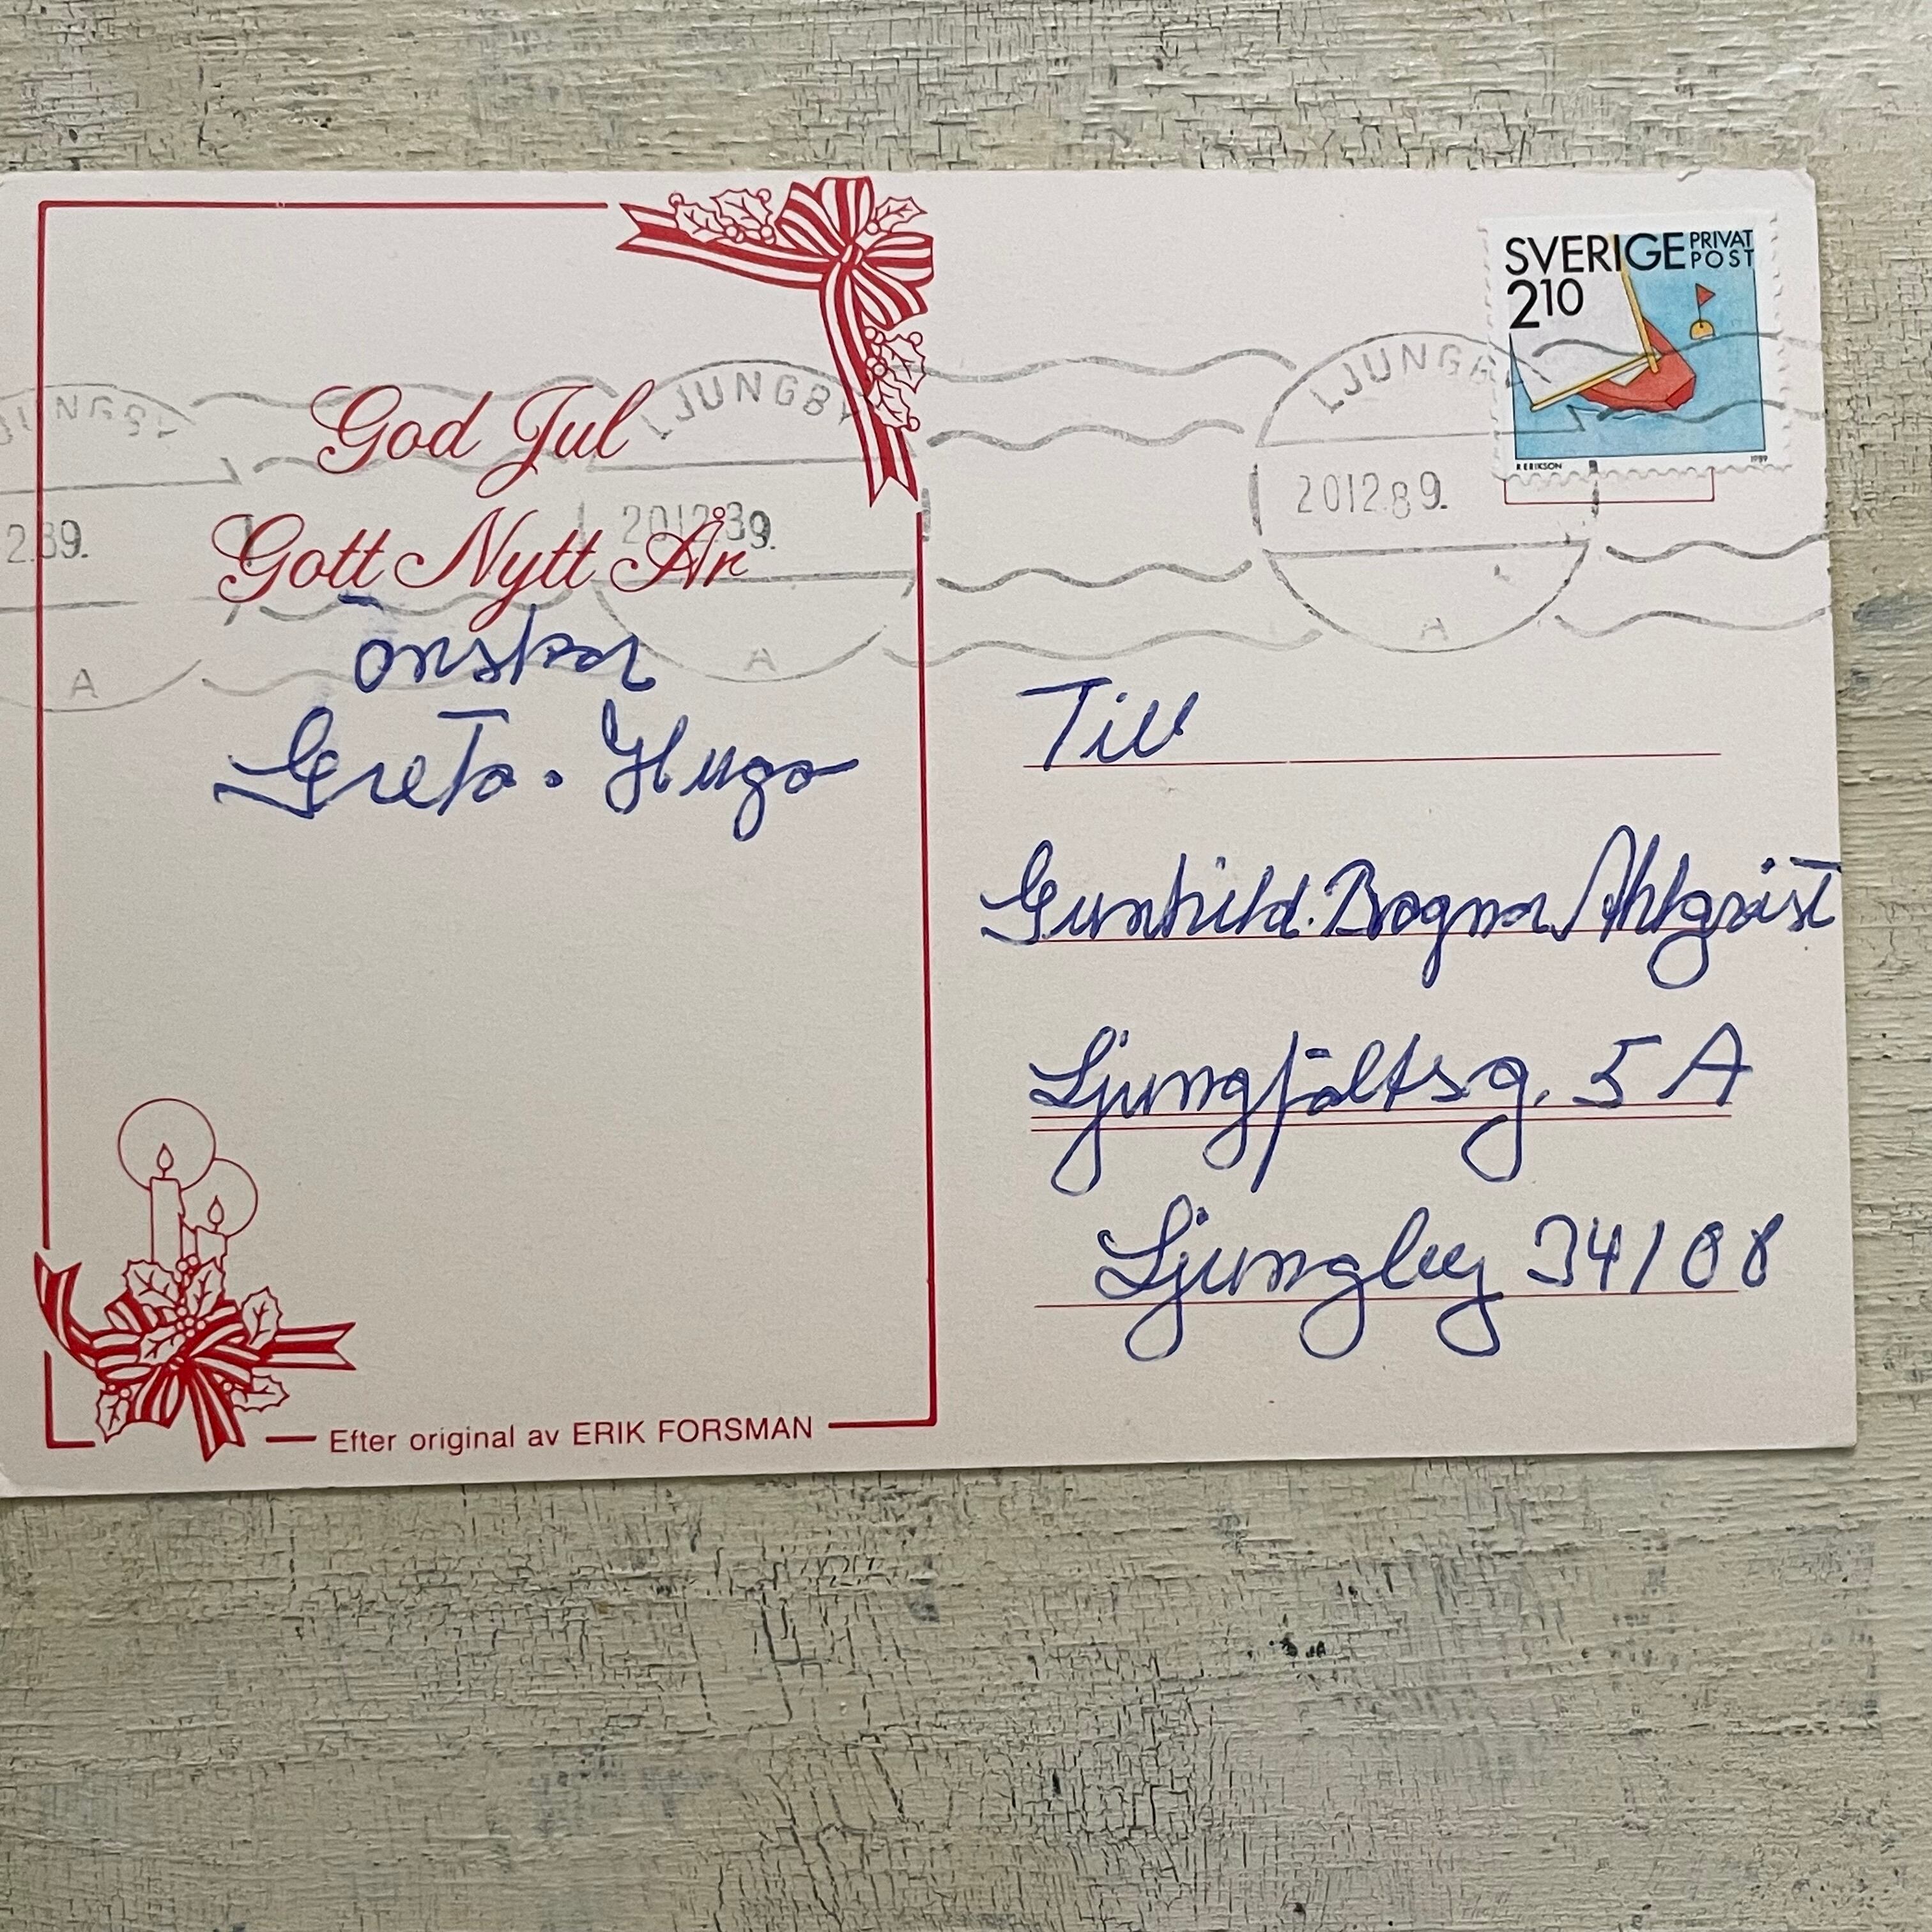 God Jul
Gott Nytt År
önskar
Greta. Hugo
Efter original av ERIK FORSMAN
SVERIGE PRIVAT POST
2 10
R ERIKSON 1989
LJUNGBY
201289.
A
LJUNGBY
201289.
A
JUNGBY
2.89.
A
Till
Gunhild. Ragnar Ahlqvist
Ljungfältsg. 5 A
Ljungby 34108